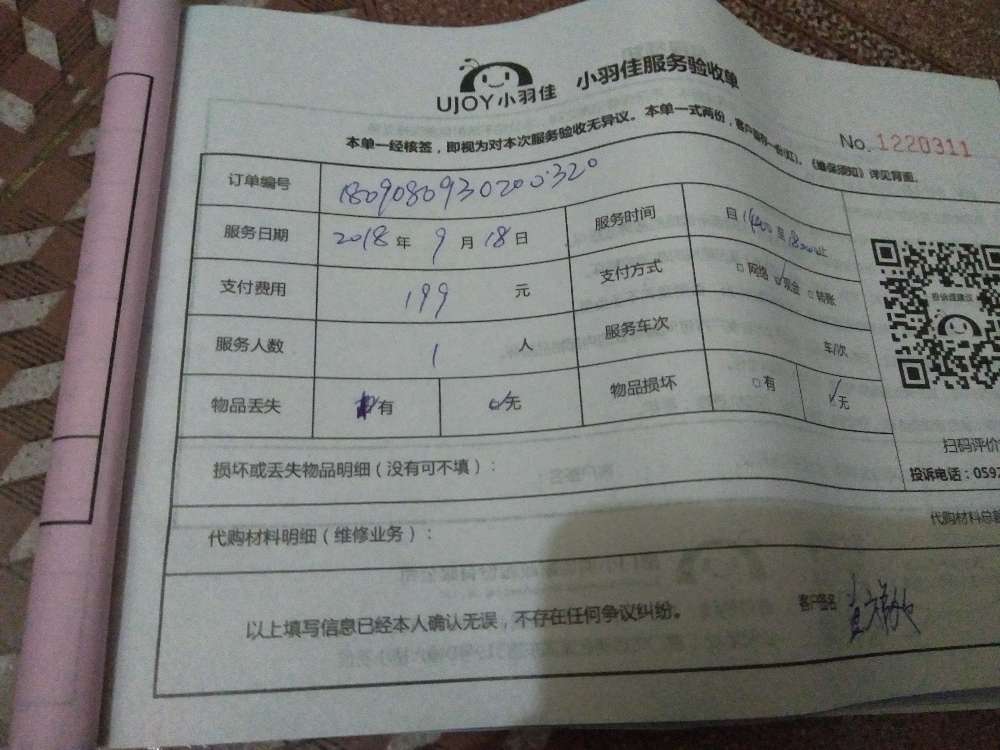 UJOY小羽佳 小羽佳服务验收单
No. 1220311
本单一经核签，即视为对本次服务验收无异议。本单一式两份，《维保须知》详见背面。
订单编号
服务日期 2018 年 9 月 18 日 服务时间 自 至 止
支付费用 199 元 支付方式 □网络 ✓现金 □转账
服务人数 1 人 服务车次 车/次
物品丢失 有 ✓无 物品损坏 □有 ✓无
投诉或建议
扫码评价
投诉电话：059
损坏或丢失物品明细（没有可不填）：
代购材料明细（维修业务）：
代购材料总
以上填写信息已经本人确认无误，不存在任何争议纠纷。
客户签名